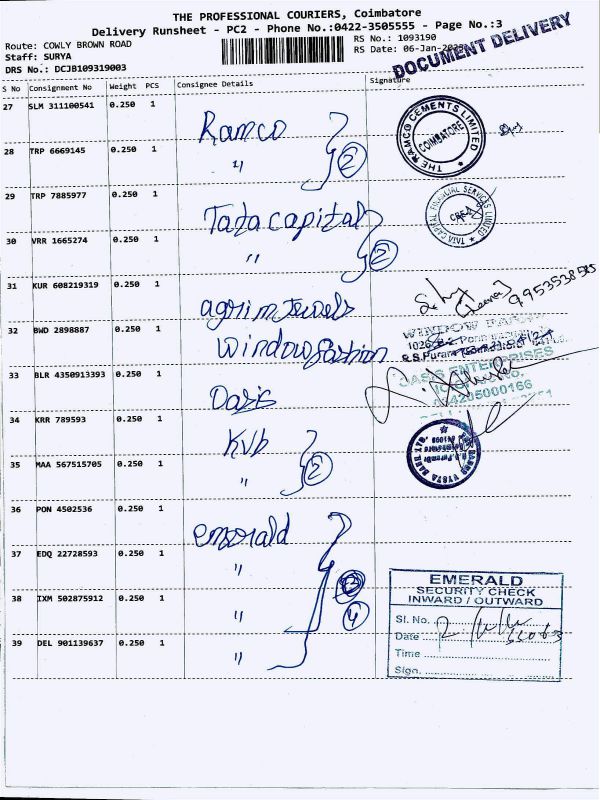 THE PROFESSIONAL COURIERS, Coimbatore
Delivery Runsheet - PC2 - Phone No.:0422-3505555 - Page No.:3
Route: COWLY BROWN ROAD
RS No.: 1093190
Staff: SURYA
RS Date: 06-Jan-
DRS No.: DCJB109319003
DOCUMENT DELIVERY
S No Consignment No Weight PCS Consignee Details Signature
27 SLM 311100541 0.250 1 Ramco
THE RAMCO CEMENTS LIMITED COIMBATORE
28 TRP 6669145 0.250 1 " 2
29 TRP 7885977 0.250 1 Tata capital
TATA CAPITAL FINANCIAL SERVICES LIMITED
30 VRR 1665274 0.250 1 " 2
31 KUR 608219319 0.250 1 agrim Jewels
9953538585
32 BWD 2898887 0.250 1 Window fashion
WINDOW
33 BLR 4350913393 0.250 1 Oasis
OASIS ENTERPRISES
34 KRR 789593 0.250 1 KVB
35 MAA 567515705 0.250 1 " 2
36 PON 4502536 0.250 1 emerald
37 EDQ 22728593 0.250 1 "
38 IXM 502875912 0.250 1 " 4
39 DEL 901139637 0.250 1 "
EMERALD
SECURITY CHECK
INWARD / OUTWARD
Sl. No.
Date
Time
Sign.